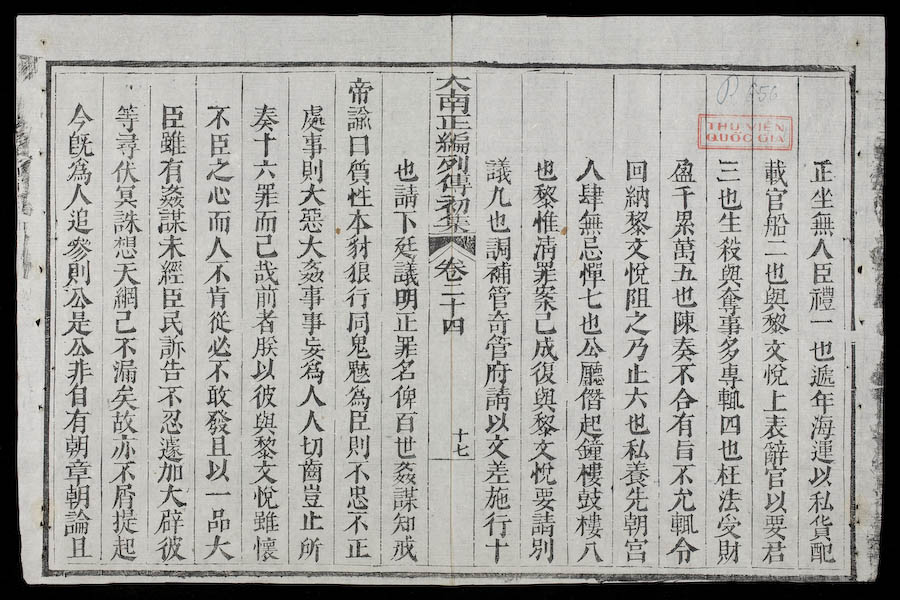 正坐無人臣禮一也遞年海運以私貨配
載官船二也與黎文悅上表辭官以要君
三也生殺與奪事多專輒四也枉法受財
盈千累萬五也陳奏不合有旨不允輒令
回納黎文悅阻之乃止六也私養先朝宮
人肆無忌憚七也公廳僭起鐘樓鼓樓八
也黎惟清罪案已成復與黎文悅要請別
議九也調補管奇管府請以文差施行十
也請下廷議明正罪名俾百世姦謀知戒
帝諭曰質性本豺狼行同鬼魃為臣則不忠不正
處事則大惡大姦事事妄為人人切齒豈止所
奏十六罪而已哉前者朕以彼與黎文悅雖懷
不臣之心而人不肯從必不敢發且以一品大
臣雖有姦謀未經臣民訴告不忍遽加大辟彼
等尋伏冥誅想天網已不漏矣故亦不屑提起
今既為人追參則公是公非自有朝章朝論且
大南正編列傳初集
卷二十四
十七
P 656
THƯ VIỆN
QUỐC GIA